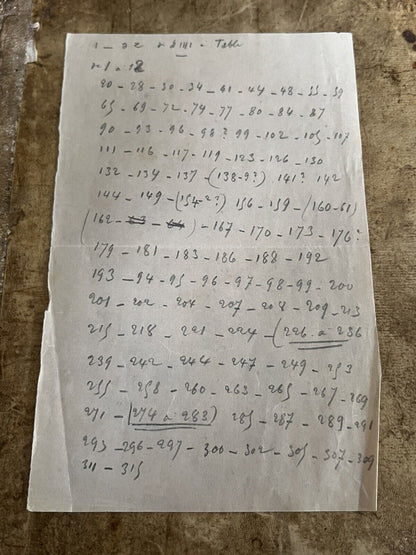 Table
20 - 28 - 30 - 34 - 41 - 44 - 48 - 55 - 59
65 - 69 - 72 - 74 - 77 - 80 - 84 - 87
90 - 93 - 96 - 98? 99 - 102 - 105 - 107
111 - 116 - 117 - 119 - 123 - 126 - 130
132 - 134 - 137 - (138-9?) 141? 142
144 - 149 - (154-2?) 156 - 159 - (160-61)
(162 - 63 - 64) - 167 - 170 - 173 - 176?
179 - 181 - 183 - 186 - 188 - 192
193 - 94 - 95 - 96 - 97 - 98 - 99 - 200
201 - 202 - 204 - 207 - 208 - 209 - 213
215 - 218 - 221 - 224 - (226 à 236
239 - 242 - 244 - 247 - 249 - 253
255 - 258 - 260 - 263 - 265 - 267 - 269
271 - (274 à 283) 285 - 287 - 289 - 291
293 - 296 - 297 - 300 - 302 - 305 - 307 - 309
311 - 315